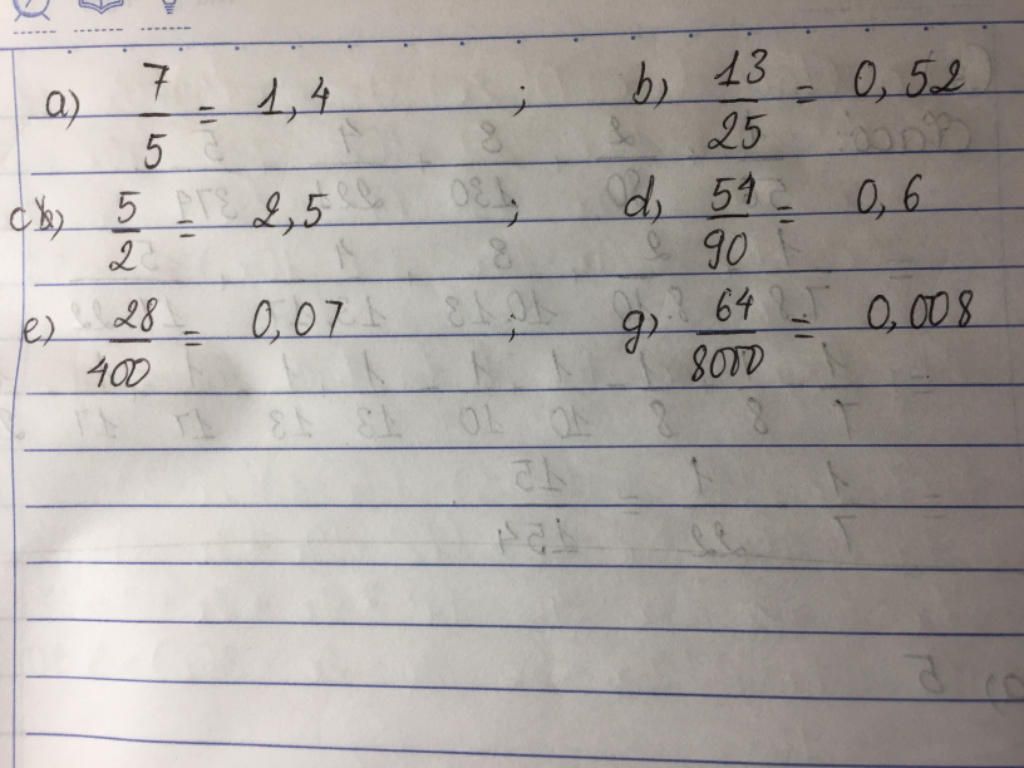 a) 7/5 = 1,4 ; b) 13/25 = 0,52
c) 5/2 = 2,5 ; d) 54/90 = 0,6
e) 28/400 = 0,07 ; g) 64/8000 = 0,008